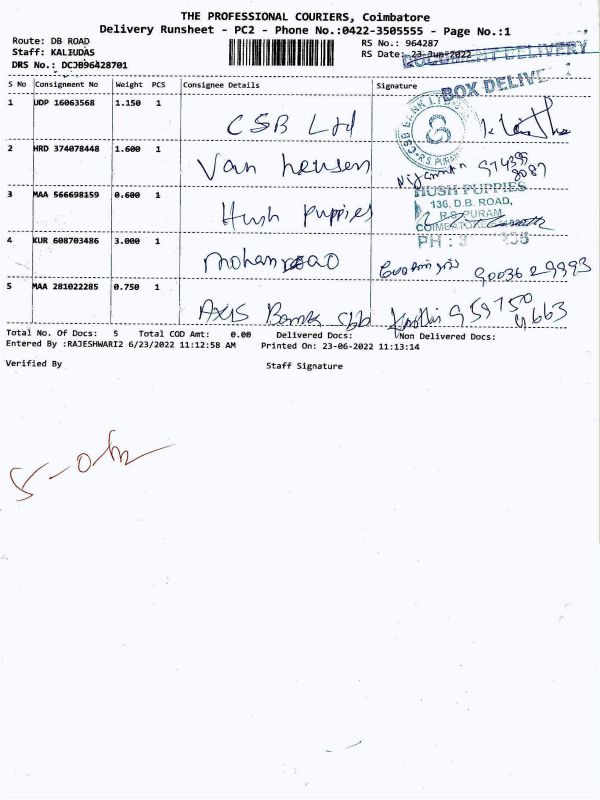 THE PROFESSIONAL COURIERS, Coimbatore
Delivery Runsheet - PC2 - Phone No.:0422-3505555 - Page No.:1
Route: DB ROAD
RS No.: 964287
Staff: KALIUDAS
RS Date: 23-Jun-2022
DOCUMENT DELIVERY
DRS No.: DCJB96428701
BOX DELIVE
S No Consignment No Weight PCS Consignee Details Signature
1 UDP 16063568 1.150 1 CSB Ltd
CSB BANK LTD R S PURAM
2 HRD 374078448 1.600 1 Van heusen
3 MAA 566698159 0.600 1 Hush Puppies
HUSH PUPPIES
136, D.B. ROAD,
R.S PURAM
COIMBATORE
PH : 3 335
4 KUR 608703486 3.000 1 mohanrao 90036 29993
5 MAA 281022285 0.750 1 AXIS Bank 959750
4663
Total No. Of Docs: 5 Total COD Amt: 0.00 Delivered Docs: Non Delivered Docs:
Entered By :RAJESHWARI2 6/23/2022 11:12:58 AM Printed On: 23-06-2022 11:13:14
Verified By Staff Signature